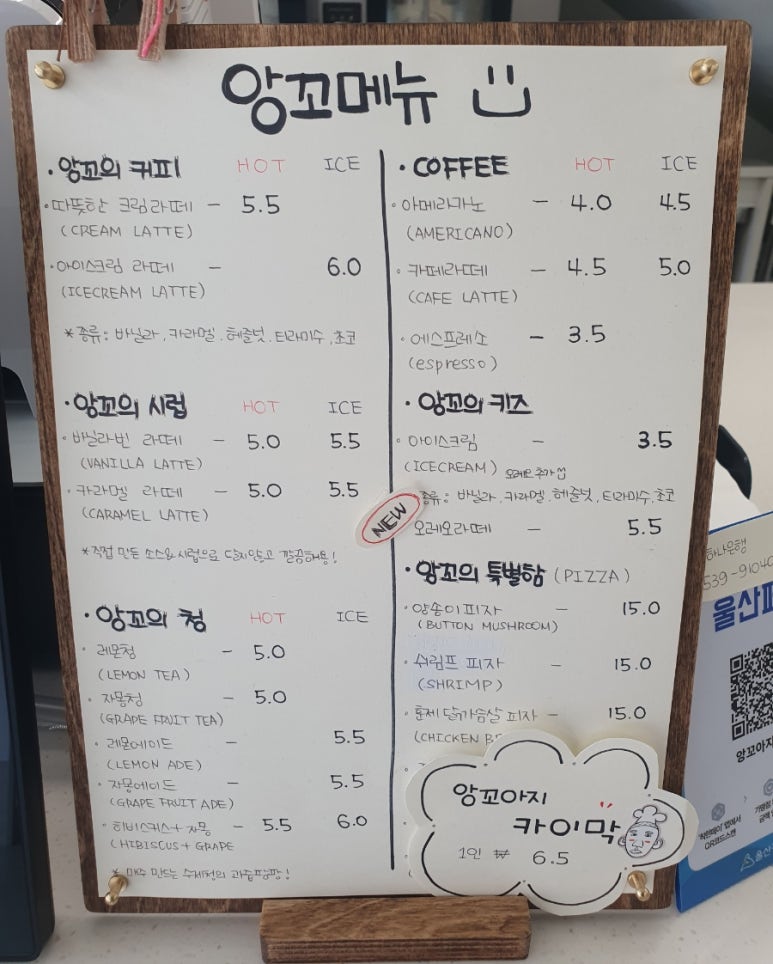 앙꼬메뉴
·앙꼬의 커피 HOT ICE
·따뜻한 크림라떼 - 5.5
(CREAM LATTE)
·아이스크림 라떼 - 6.0
(ICECREAM LATTE)
*종류: 바닐라, 카라멜, 헤즐넛, 티라미수, 초코
·앙꼬의 시럽 HOT ICE
·바닐라빈 라떼 - 5.0 5.5
(VANILLA LATTE)
·카라멜 라떼 - 5.0 5.5
(CARAMEL LATTE)
*직접 만든 소스&시럽으로 달지않고 깔끔해용!
·앙꼬의 청 HOT ICE
·레몬청 - 5.0
(LEMON TEA)
·자몽청 - 5.0
(GRAPE FRUIT TEA)
·레몬에이드 - 5.5
(LEMON ADE)
·자몽에이드 - 5.5
(GRAPE FRUIT ADE)
·히비스커스+자몽 - 5.5 6.0
(HIBISCUS+GRAPE
만드는 수제청의 과즙팡팡!
·COFFEE HOT ICE
·아메리카노 - 4.0 4.5
(AMERICANO)
·카페라떼 - 4.5 5.0
(CAFE LATTE)
·에스프레소 - 3.5
(espresso)
·앙꼬의 키즈
·아이스크림 - 3.5
(ICECREAM) 오레오 추가
종류: 바닐라, 카라멜, 헤즐넛, 티라미수, 초코
NEW
오레오라떼 - 5.5
·앙꼬의 특별함 (PIZZA)
·양송이피자 - 15.0
(BUTTON MUSHROOM)
·쉬림프 피자 - 15.0
(SHRIMP)
·훈제 닭가슴살 피자 - 15.0
(CHICKEN BR
앙꼬아지
카이막
1인 ₩ 6.5
하나은행
539-91040
울산페
앙꼬아지
QR코드스캔
울산